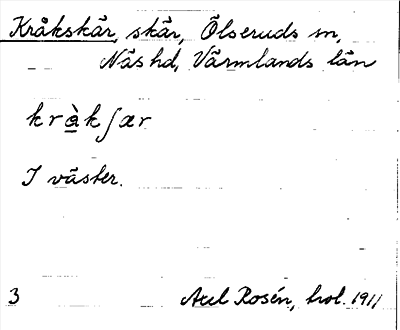 Kråkskär, skär, Ölseruds sn,
Näs hd, Värmlands län
kràkʃær
I väster.
3 Axel Rosén, hol. 1911